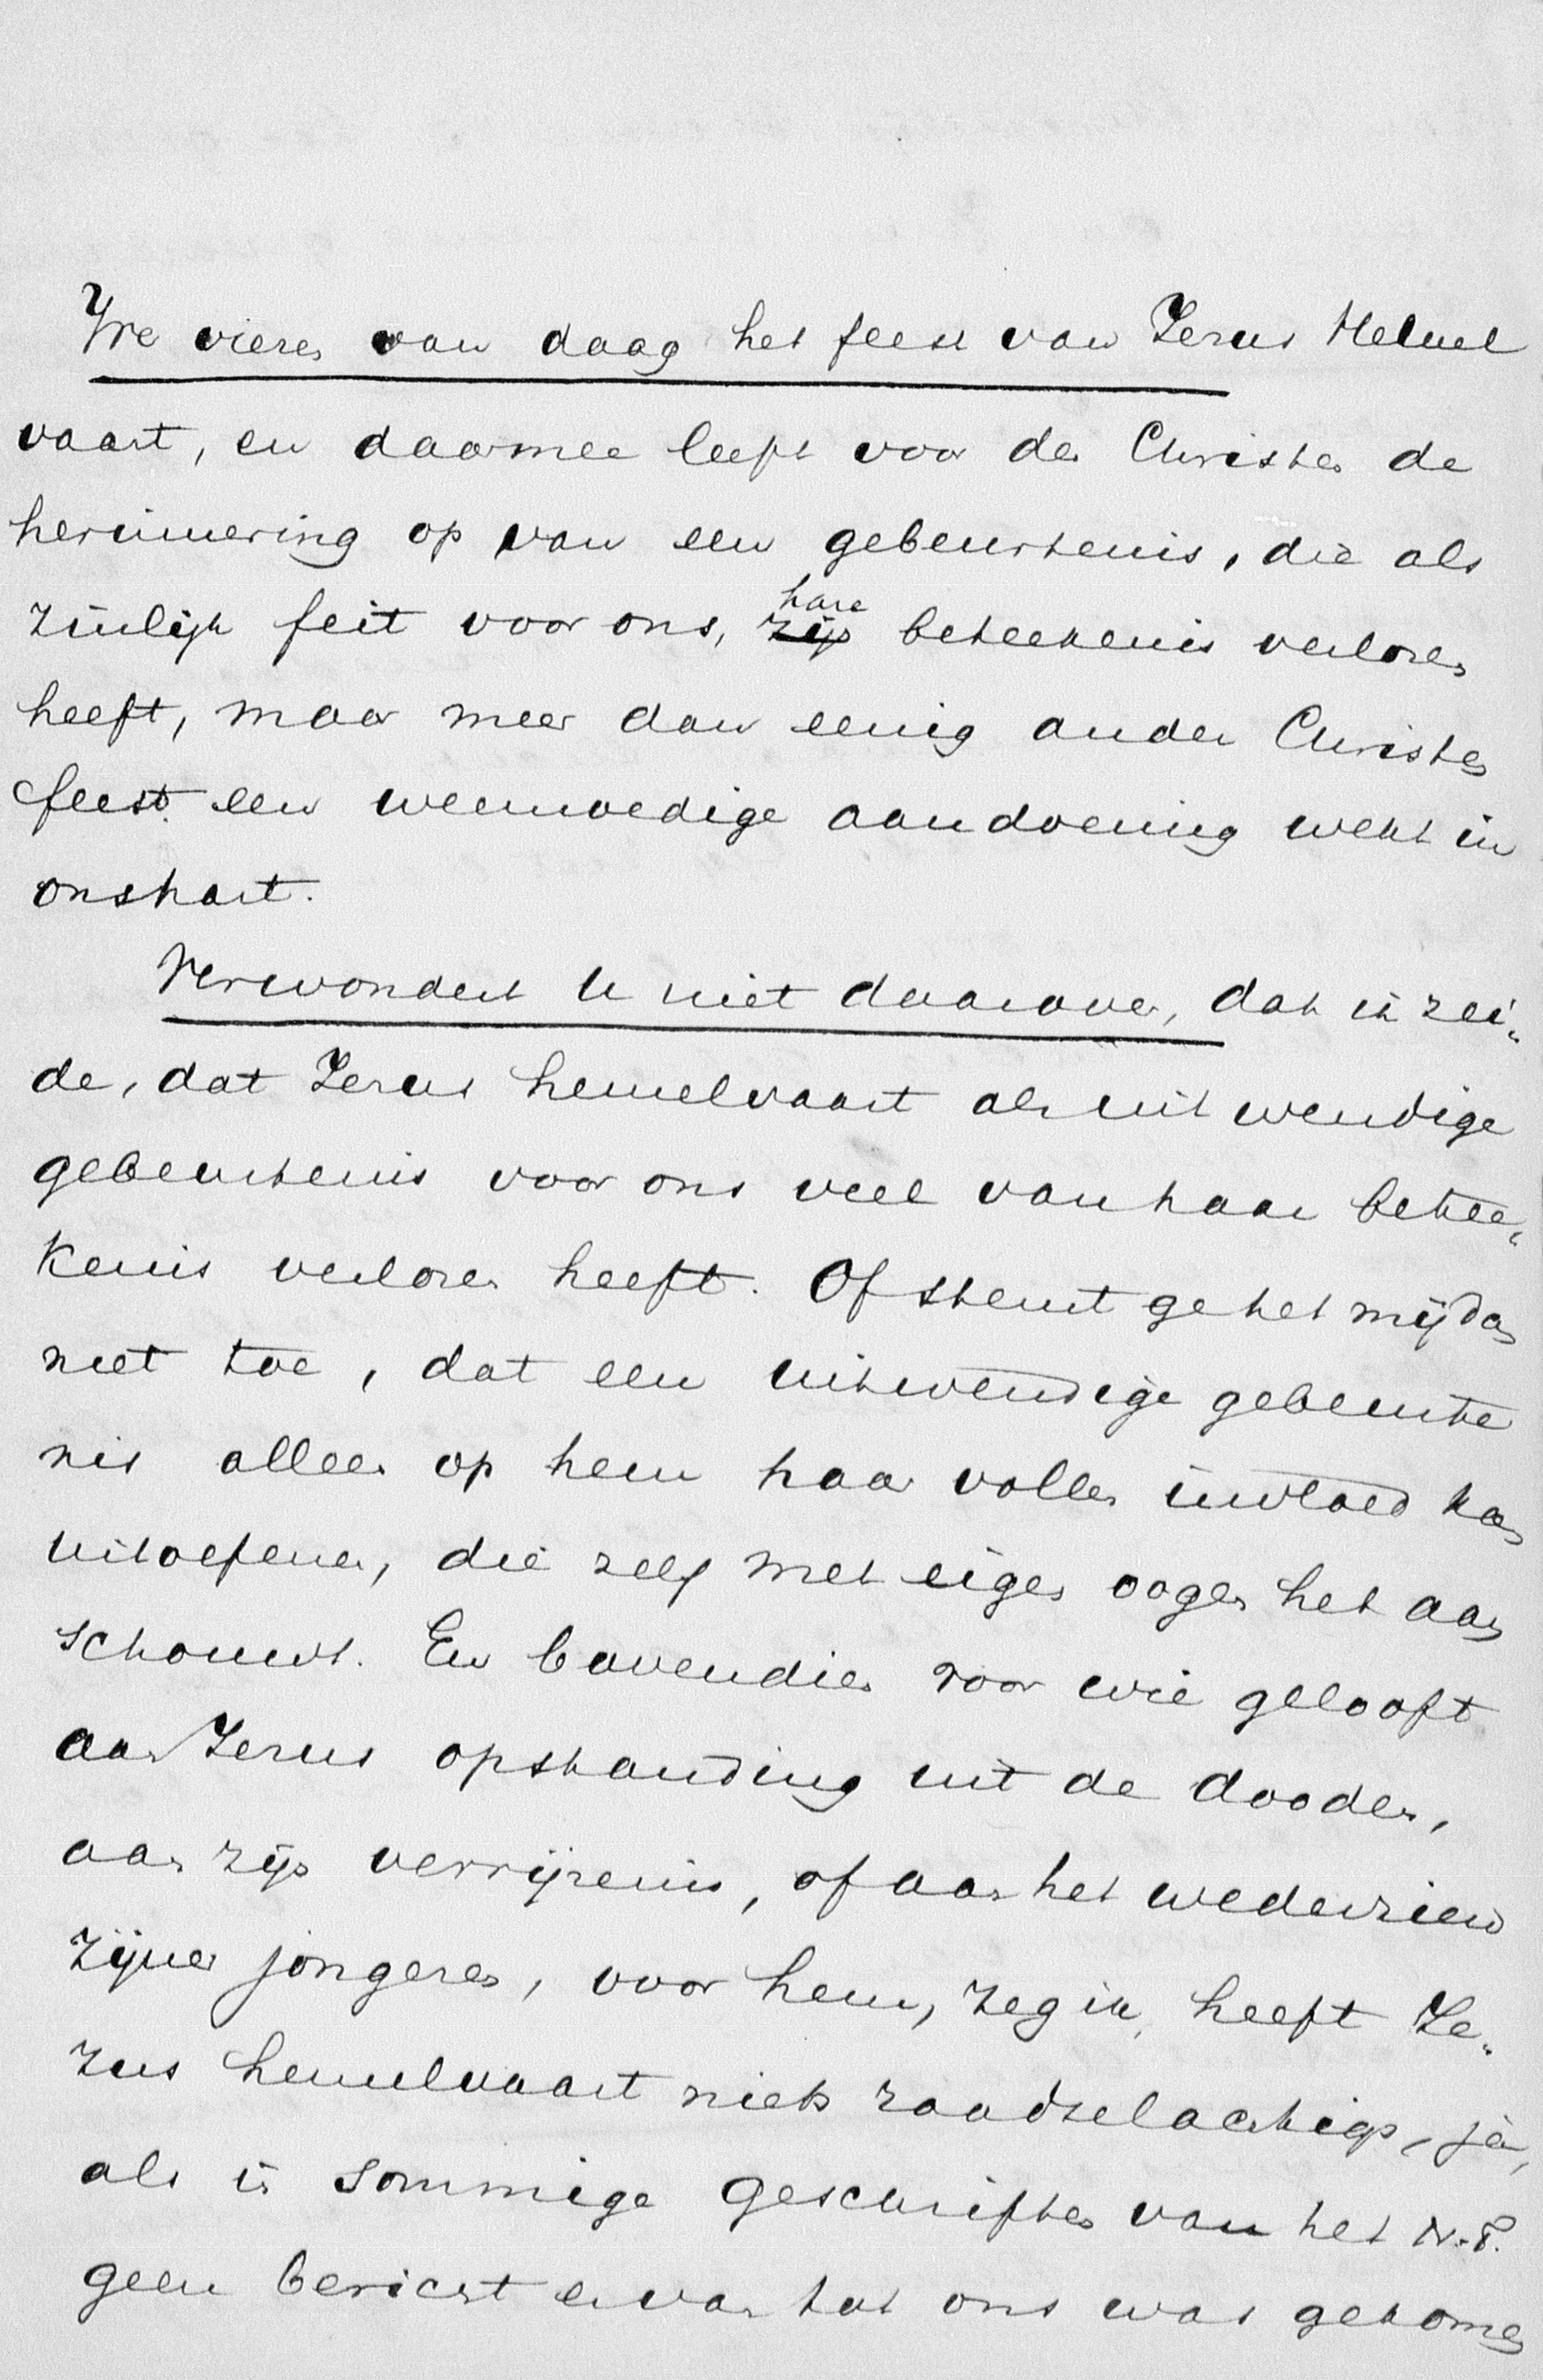 We vieren van daag het feest van Jezus Hemel
vaart, en daarmee leeft voor den Christen de
herinnering op van een gebeurtenis, die als
zinlijk feit voor ons, zijn hare beteekenis verloren
heeft, maar meer dan eenig ander Christen
feest een weemoedige aandoening wekt in
ons hart.
Verwondert U niet daarover, dat ik zei„
de, dat Jezus hemelvaart als uitwendige
gebeurtenis voor ons veel van haar betee„
kenis verloren heeft. Of stemt ge het mij dan
niet toe, dat een uitwendige gebeurte
nis alleen op hem haar vollen invloed kan
uitoefenen, die zelf met eigen oogen het aan
schouwt. En bovendien voor wie gelooft
aan Jezus opstanding uit de dooden,
aan zijn verrijzenis, of aan het wederzien
zijner jongeren, voor hem, zeg ik, heeft Je„
zus hemelvaart niets raadselachtigs, ja,
als in sommige geschriften van het N.T.
geen bericht ervan tot ons was gekomen